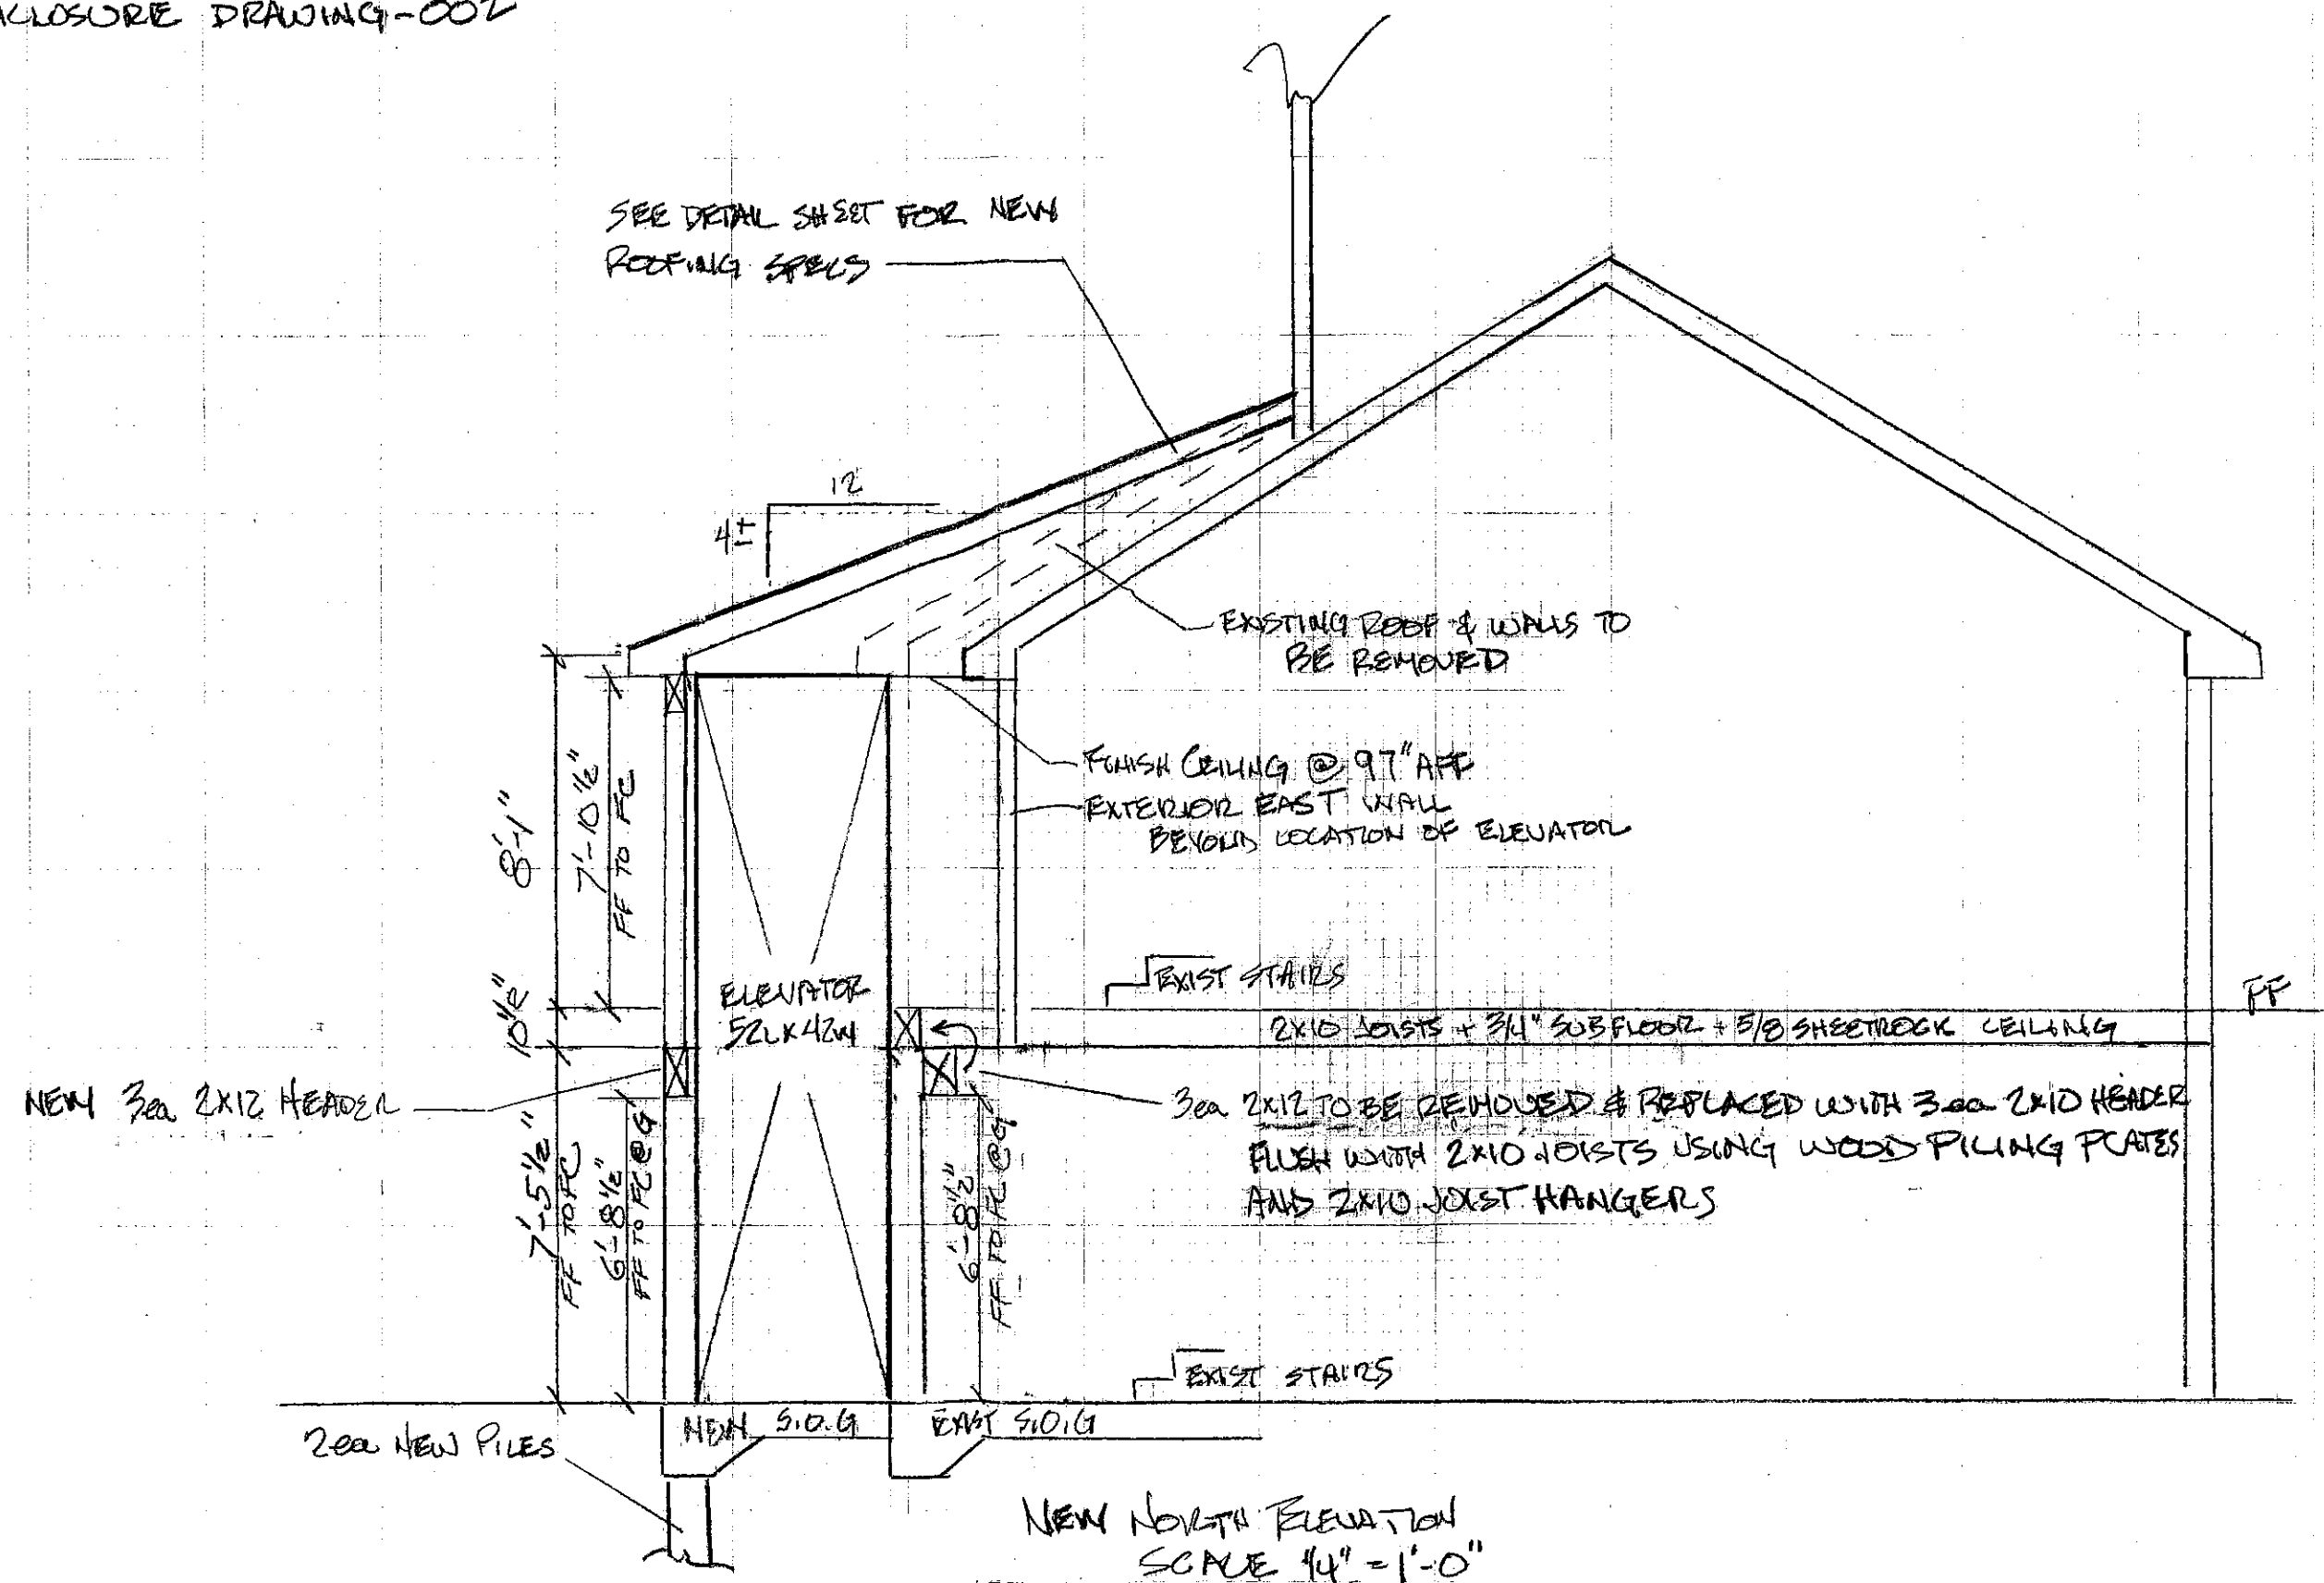 CLOSURE DRAWING-002
SEE DETAIL SHEET FOR NEW
ROOFING SPECS
12
4±
EXISTING ROOF & WALLS TO
BE REMOVED
FINISH CEILING @ 97" AFF
EXTERIOR EAST WALL
BEYOND LOCATION OF ELEVATOR
8'-1"
7'-10 1/2"
FF TO FC
10 1/2"
ELEVATOR
52L X 42W
EXIST STAIRS
FF
2X10 JOISTS + 3/4" SUBFLOOR + 5/8 SHEETROCK CEILING
NEW 3ea 2X12 HEADER
3ea 2X12 TO BE REMOVED & REPLACED WITH 3ea 2X10 HEADER
FLUSH WITH 2X10 JOISTS USING WOOD PILING PLATES
AND 2X10 JOIST HANGERS
7'-5 1/2"
FF TO FC
6'-8 1/2"
FF TO FC @ G
6'-8 1/2"
FF TO FC @ G
EXIST STAIRS
2ea NEW PILES
NEW S.O.G
EXIST S.O.G
NEW NORTH ELEVATION
SCALE 1/4" = 1'-0"